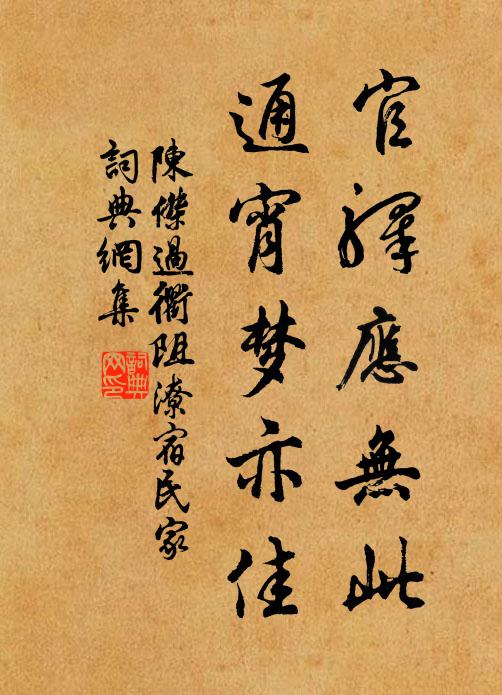 官驛應無此
通宵梦亦佳
陳傑過衢阻潦宿民家
詞典網集
詞典网印